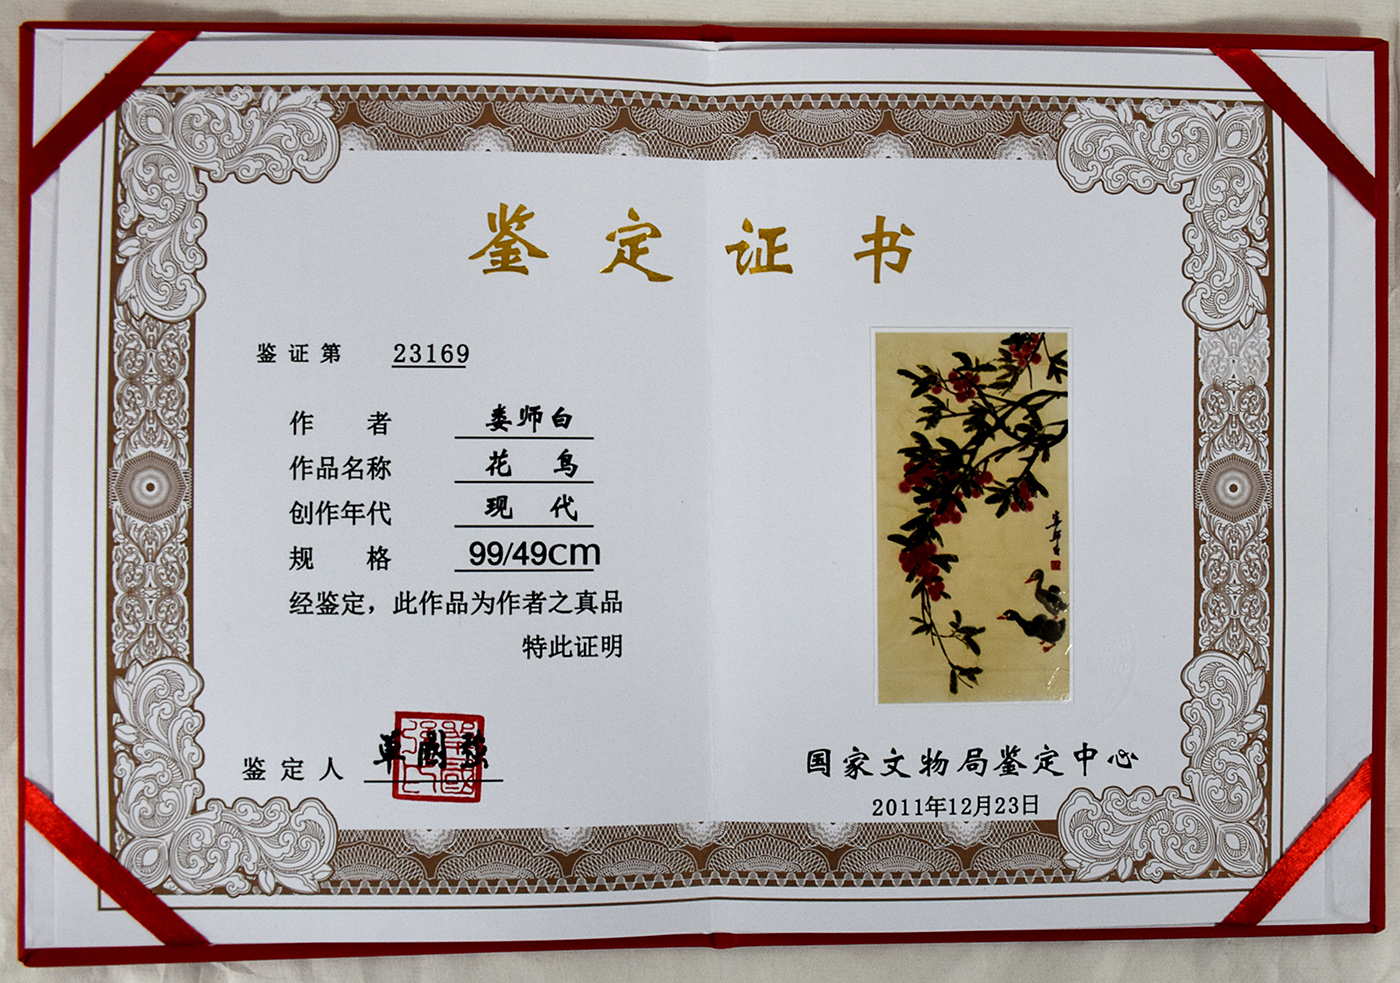 鉴定证书
鉴证第 23169
作者 娄师白
作品名称 花鸟
创作年代 现代
规格 99/49cm
经鉴定，此作品为作者之真品
特此证明
鉴定人 卓国强
娄师白
国家文物局鉴定中心
2011年12月23日